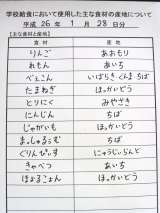 学校給食において使用した主な食材の産地について
平成 26 年 1 月 28 日分
【主な食材と産地】
食材 産地
りんご あおもり
れもん あいち
べぇこん いばらき ぐんま ちば
たまねぎ ほっかいどう
とりにく みやざき
にんじん ちば
じゃがいも ほっかいどう
まっしゅるうむ ちば
ぐりんぴぃす にゅうじぃらんど
きゃべつ あいち
ほぉるこぉん ほっかいどう